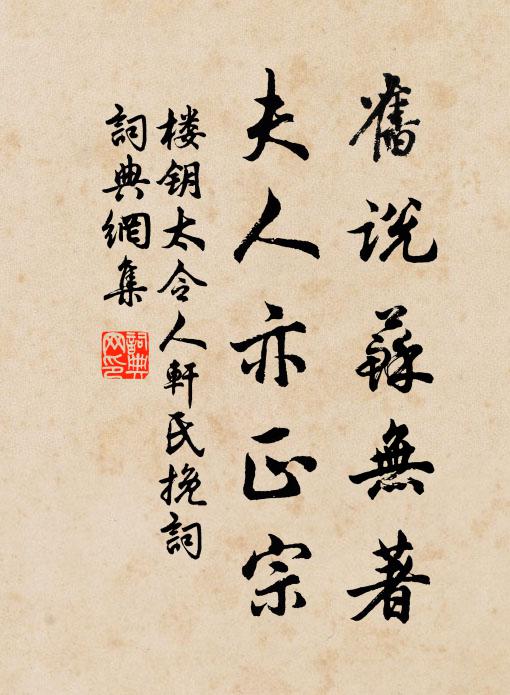 舊說蘇無著
夫人亦正宗
楼钥太令人軒氏挽詞
詞典網集
詞典網印